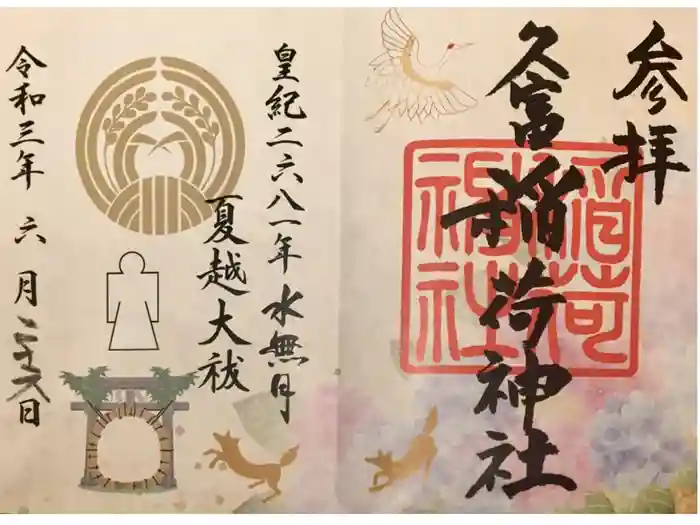 参拝
久富稲荷神社
稲荷
神社
皇紀二六八一年水無月
夏越大祓
令和三年六月二十六日